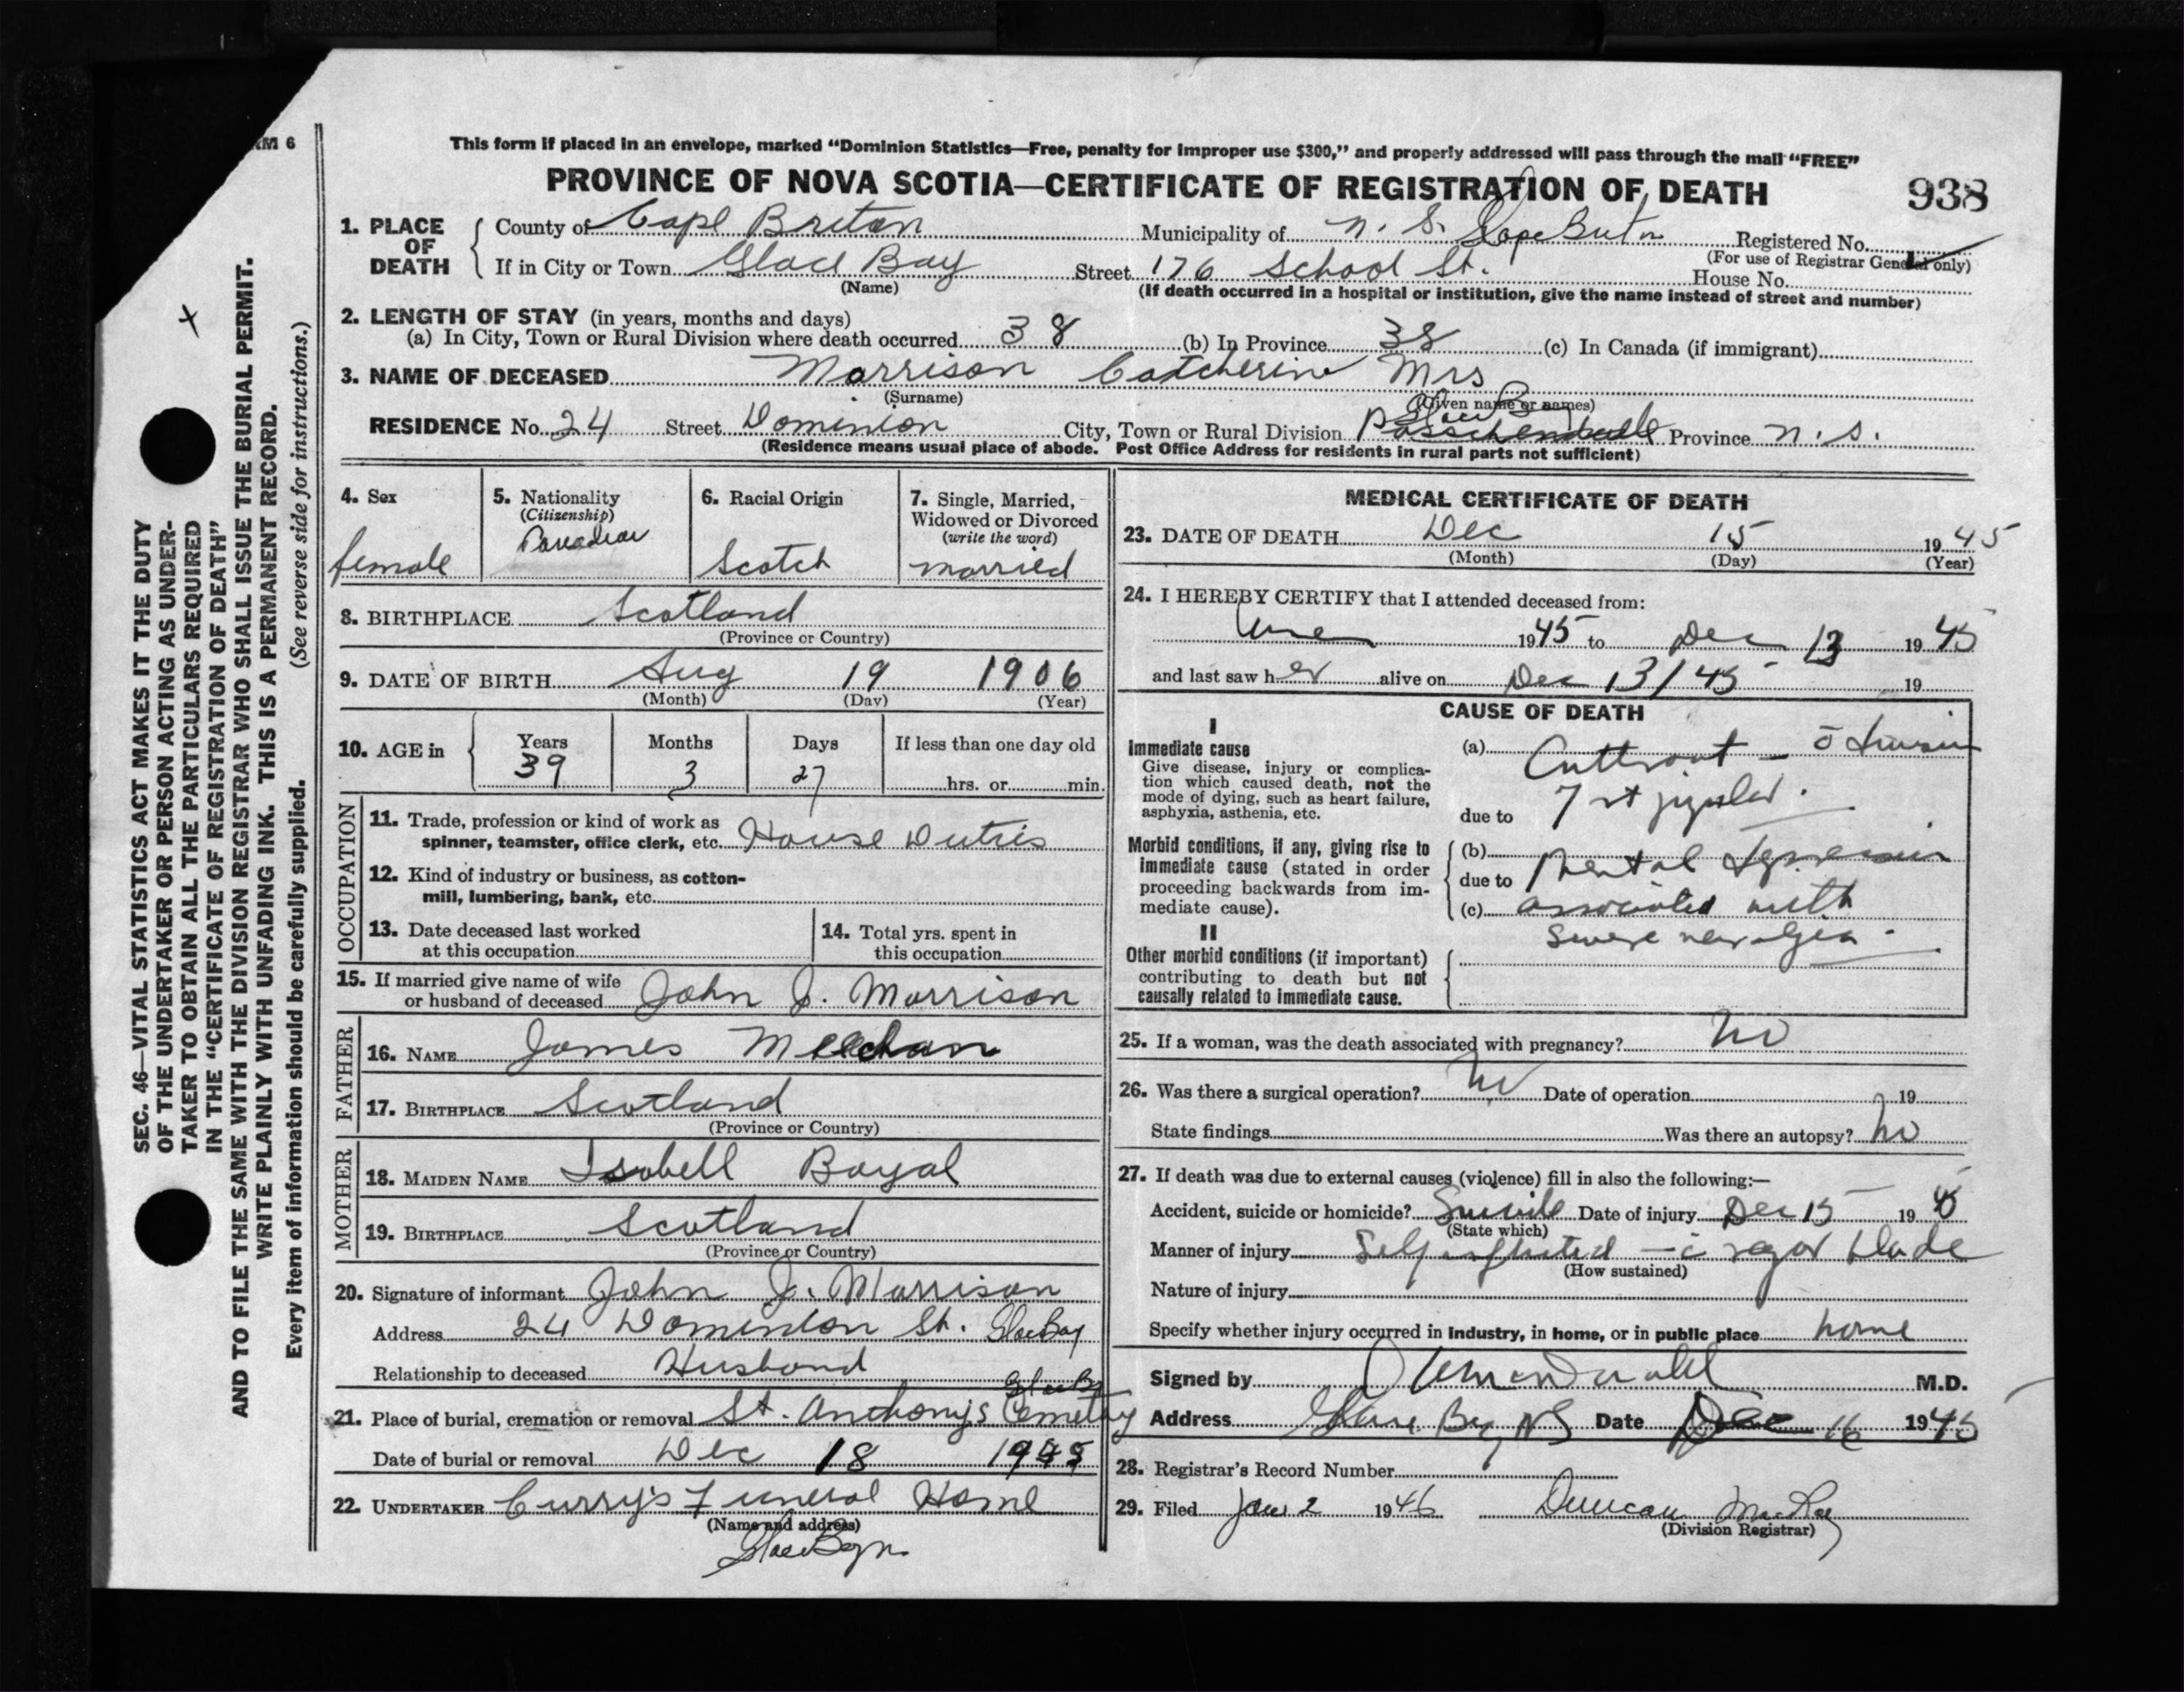 FORM 6
This form if placed in an envelope, marked “Dominion Statistics—Free, penalty for improper use $300,” and properly addressed will pass through the mail “FREE”
PROVINCE OF NOVA SCOTIA—CERTIFICATE OF REGISTRATION OF DEATH 938
1. PLACE OF DEATH County of Cape Breton Municipality of N. S. Cape Breton Registered No.
(For use of Registrar General only)
If in City or Town Glace Bay Street 176 School St. House No.
(Name) (If death occurred in a hospital or institution, give the name instead of street and number)
2. LENGTH OF STAY (in years, months and days)
(a) In City, Town or Rural Division where death occurred 38 (b) In Province 38 (c) In Canada (if immigrant)
3. NAME OF DECEASED Morrison Catcherine Mrs
(Surname) (Given name or names)
Glace B
RESIDENCE No. 24 Street Dominion City, Town or Rural Division Passchendaele Province N.S.
(Residence means usual place of abode. Post Office Address for residents in rural parts not sufficient)
4. Sex female
5. Nationality (Citizenship) Canadian
6. Racial Origin Scotch
7. Single, Married, Widowed or Divorced (write the word) married
8. BIRTHPLACE Scotland
(Province or Country)
9. DATE OF BIRTH Aug 19 1906
(Month) (Day) (Year)
10. AGE in Years 39 Months 3 Days 27 If less than one day old hrs. or min.
OCCUPATION
11. Trade, profession or kind of work as spinner, teamster, office clerk, etc. House Duties
12. Kind of industry or business, as cotton-mill, lumbering, bank, etc.
13. Date deceased last worked at this occupation
14. Total yrs. spent in this occupation
15. If married give name of wife or husband of deceased John J. Morrison
FATHER
16. NAME James Meechan
17. BIRTHPLACE Scotland
(Province or Country)
MOTHER
18. MAIDEN NAME Isobell Boyal
19. BIRTHPLACE Scotland
(Province or Country)
20. Signature of informant John J. Morrison
Address 24 Dominion St. Glace Bay
Relationship to deceased Husband
Glace B
21. Place of burial, cremation or removal St. Anthonys Cemetay
Date of burial or removal Dec 18 1945
22. UNDERTAKER Curry's Funeral Home
(Name and address)
Glace Bay
MEDICAL CERTIFICATE OF DEATH
23. DATE OF DEATH Dec 15 1945
(Month) (Day) (Year)
24. I HEREBY CERTIFY that I attended deceased from:
June 1945 to Dec 13 1945
and last saw her alive on Dec 13/45 19
CAUSE OF DEATH
I
Immediate cause
Give disease, injury or complication which caused death, not the mode of dying, such as heart failure, asphyxia, asthenia, etc.
(a) Cut throat —
due to jugular.
Morbid conditions, if any, giving rise to immediate cause (stated in order proceeding backwards from immediate cause).
(b)
due to Mental depression
(c) associated with
severe neuralgia.
II
Other morbid conditions (if important) contributing to death but not causally related to immediate cause.
25. If a woman, was the death associated with pregnancy? No
26. Was there a surgical operation? No Date of operation 19
State findings Was there an autopsy? No
27. If death was due to external causes (violence) fill in also the following:—
Accident, suicide or homicide? Suicide Date of injury Dec 15 1945
(State which)
Manner of injury Self inflicted — c̄ razor blade
(How sustained)
Nature of injury
Specify whether injury occurred in industry, in home, or in public place home
Signed by M.D.
Address Glace Bay NS Date Dec 16 1945
28. Registrar's Record Number
29. Filed Jan 2 1946 Duncan MacRae
(Division Registrar)
SEC. 46—VITAL STATISTICS ACT MAKES IT THE DUTY
OF THE UNDERTAKER OR PERSON ACTING AS UNDER-
TAKER TO OBTAIN ALL THE PARTICULARS REQUIRED
IN THE “CERTIFICATE OF REGISTRATION OF DEATH”
AND TO FILE THE SAME WITH THE DIVISION REGISTRAR WHO SHALL ISSUE THE BURIAL PERMIT.
WRITE PLAINLY WITH UNFADING INK. THIS IS A PERMANENT RECORD.
Every item of information should be carefully supplied. (See reverse side for instructions.)